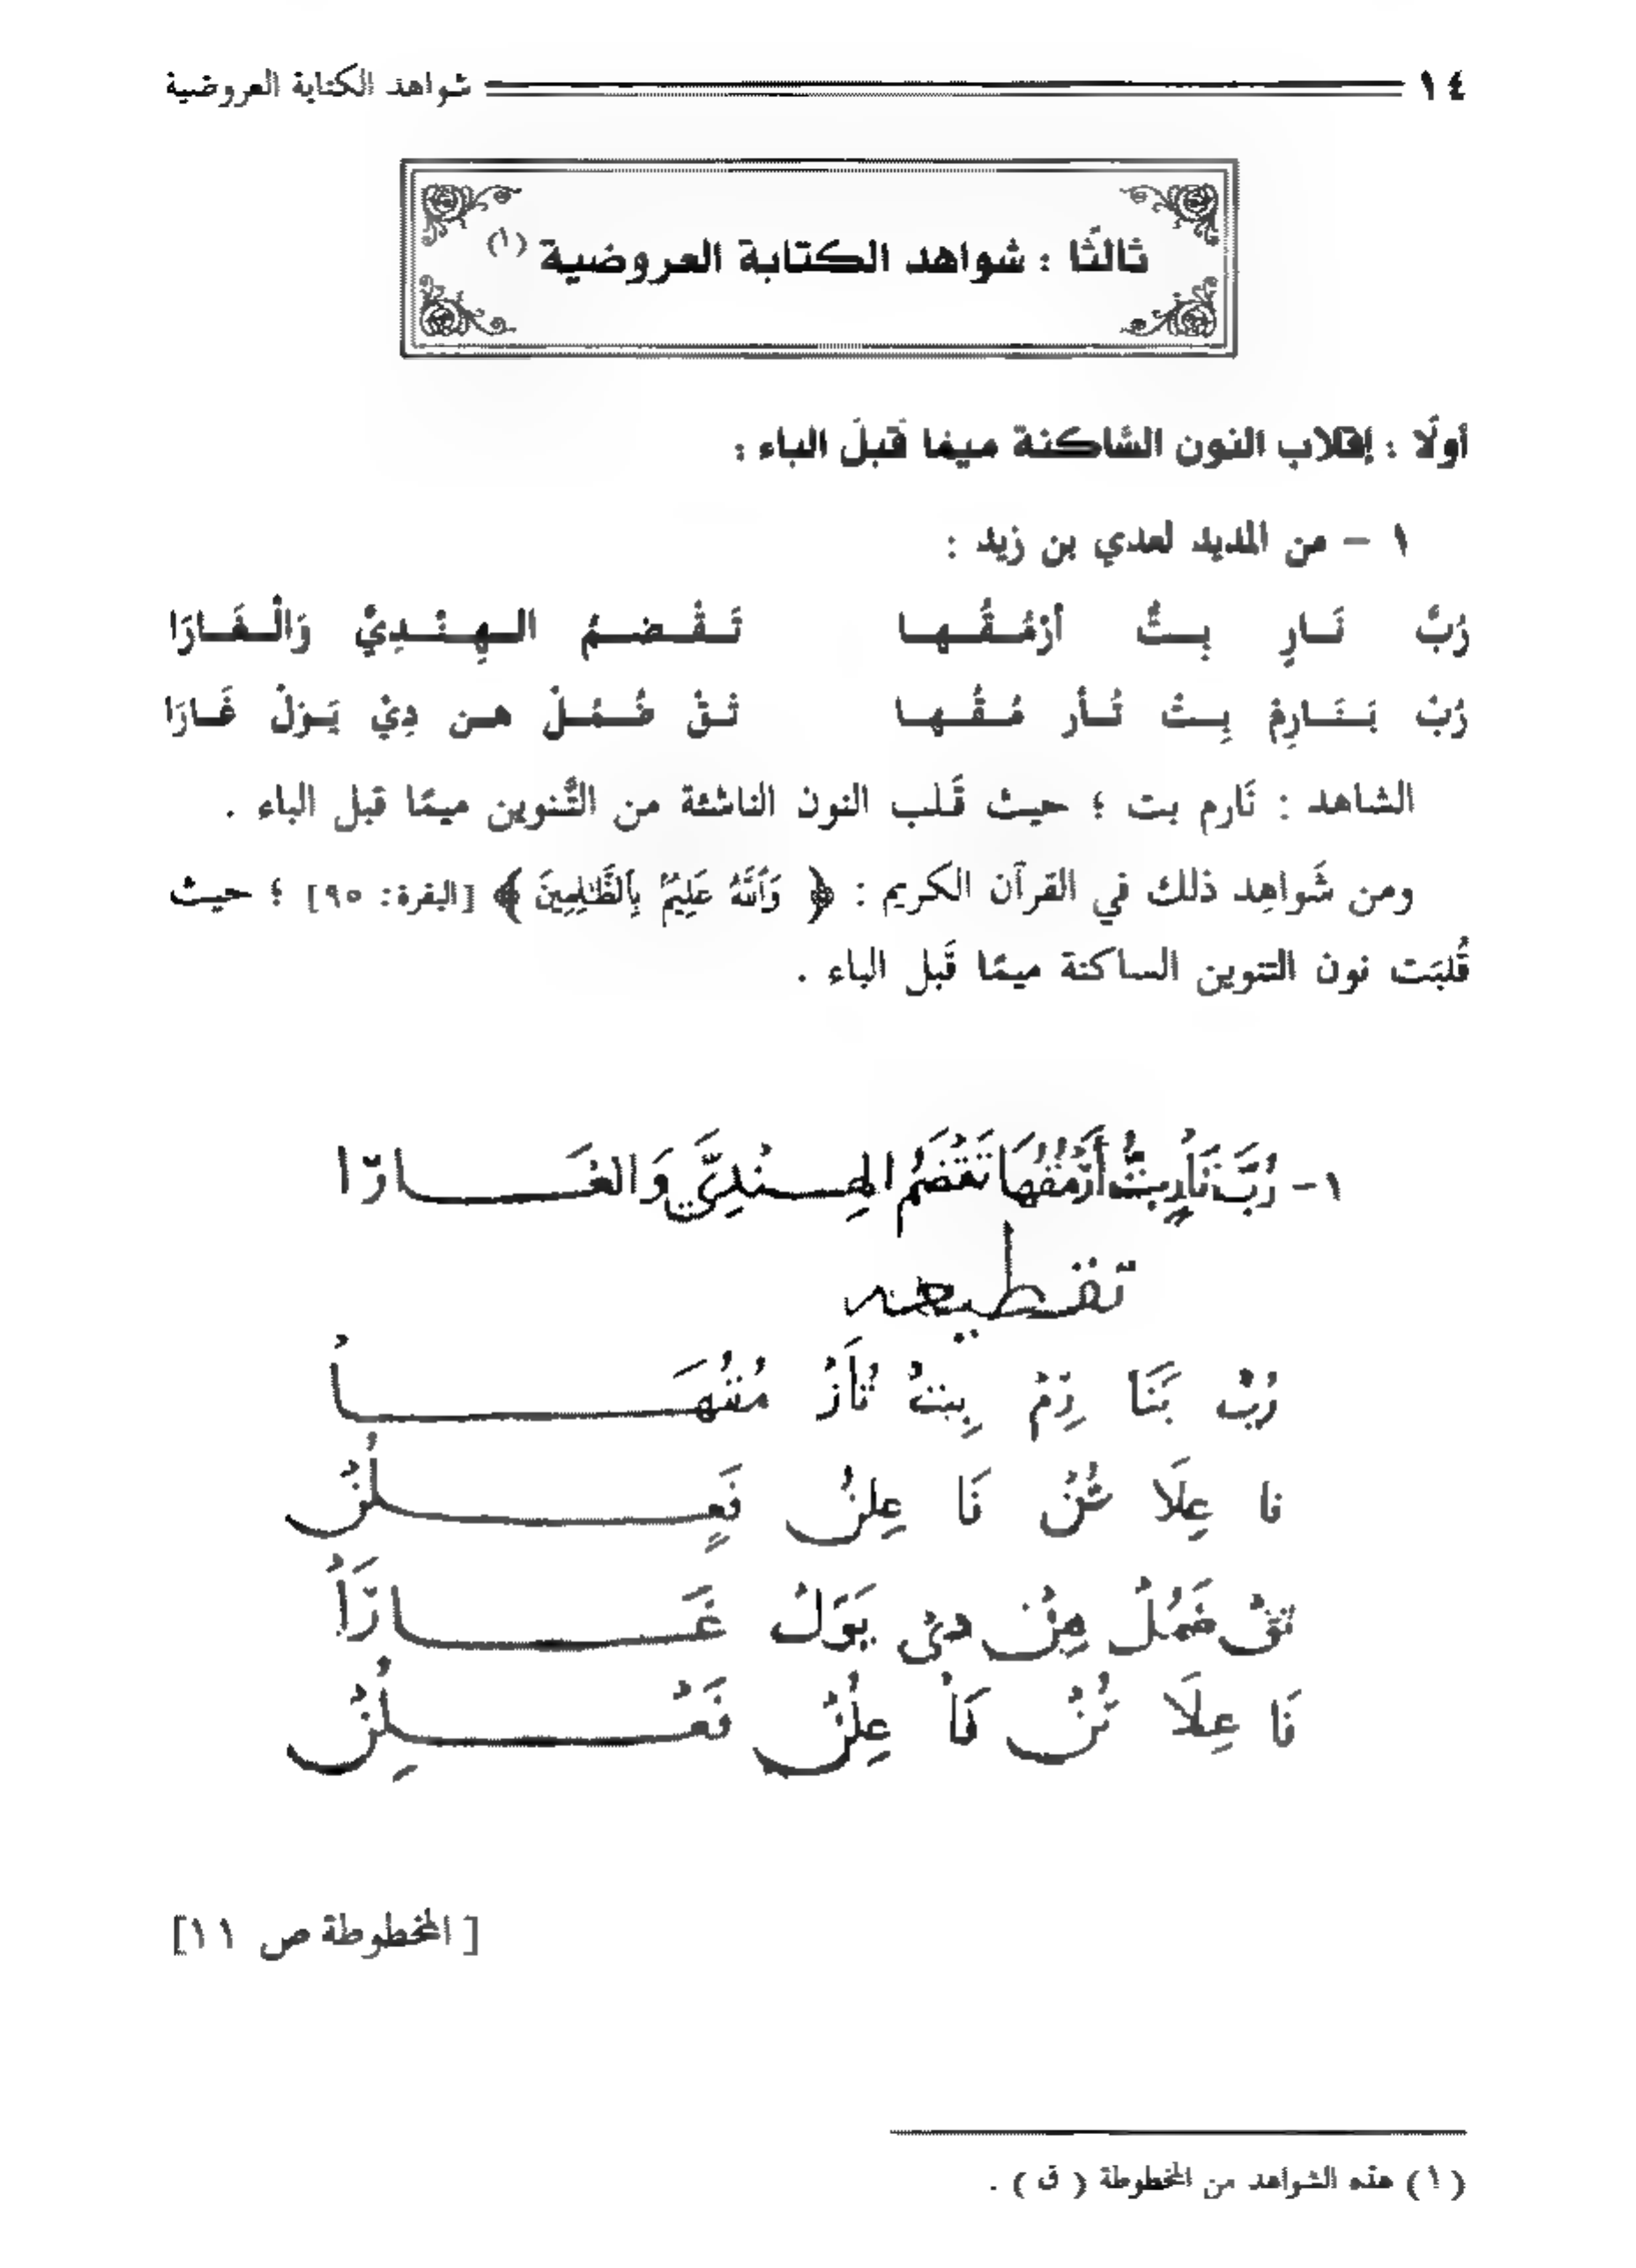 ١٤ شواهد الكتابة العروضية
ثالثًا : شواهد الكتابة العروضية (١)
أولًا : إقلاب النون السَّاكنة ميمًا قَبلَ الباء :
١ - من المديد لعدي بن زيد :
رُبَّ نَـارٍ بِـتُّ أَرْمُـقُـهـا تَـقْـضـمُ الـهِـنْـدِيَّ وَالْـغَـارَا
رُبْ بَـنَـارِمْ بِـتْ تُـأَر مُـقُـهـا تَـقْ ضُـمُـلْ هـن دِيْ يَـوَلْ غَـارَا
الشاهد : نَارم بت ؛ حيث قَلب النون الناشئة من التَّنوين ميمًا قبل الباء .
ومن شَواهِد ذلك في القرآن الكريم : ﴿ وَٱللَّهُ عَلِيمٌۢ بِٱلظَّٰلِمِينَ ﴾ [البقرة: ٩٥] ؛ حيث
قُلبَت نون التنوين الساكنة ميمًا قَبل الباء .
١- رُبَّ نَارٍ بِتُّ أَرْمُقُهَا تَقْضَمُ الهِـنْدِيَّ وَالغَـارَا
تقطيعه
رُبْ بَنَا رِمْ بِتْ تُأَرْ مُقُهَـا
فا عِلَا تُنْ فَا عِلُنْ فَعِـلُنْ
تَقْ ضَمُلْ هِنْ دِيْ يَوَلْ غَـارَاْ
فَا عِلَا تُنْ فَاْ عِلُنْ فَعْـلِنْ
[ المخطوطة ص ١١]
(١) هذه الشواهد من المخطوطة ( ق ) .